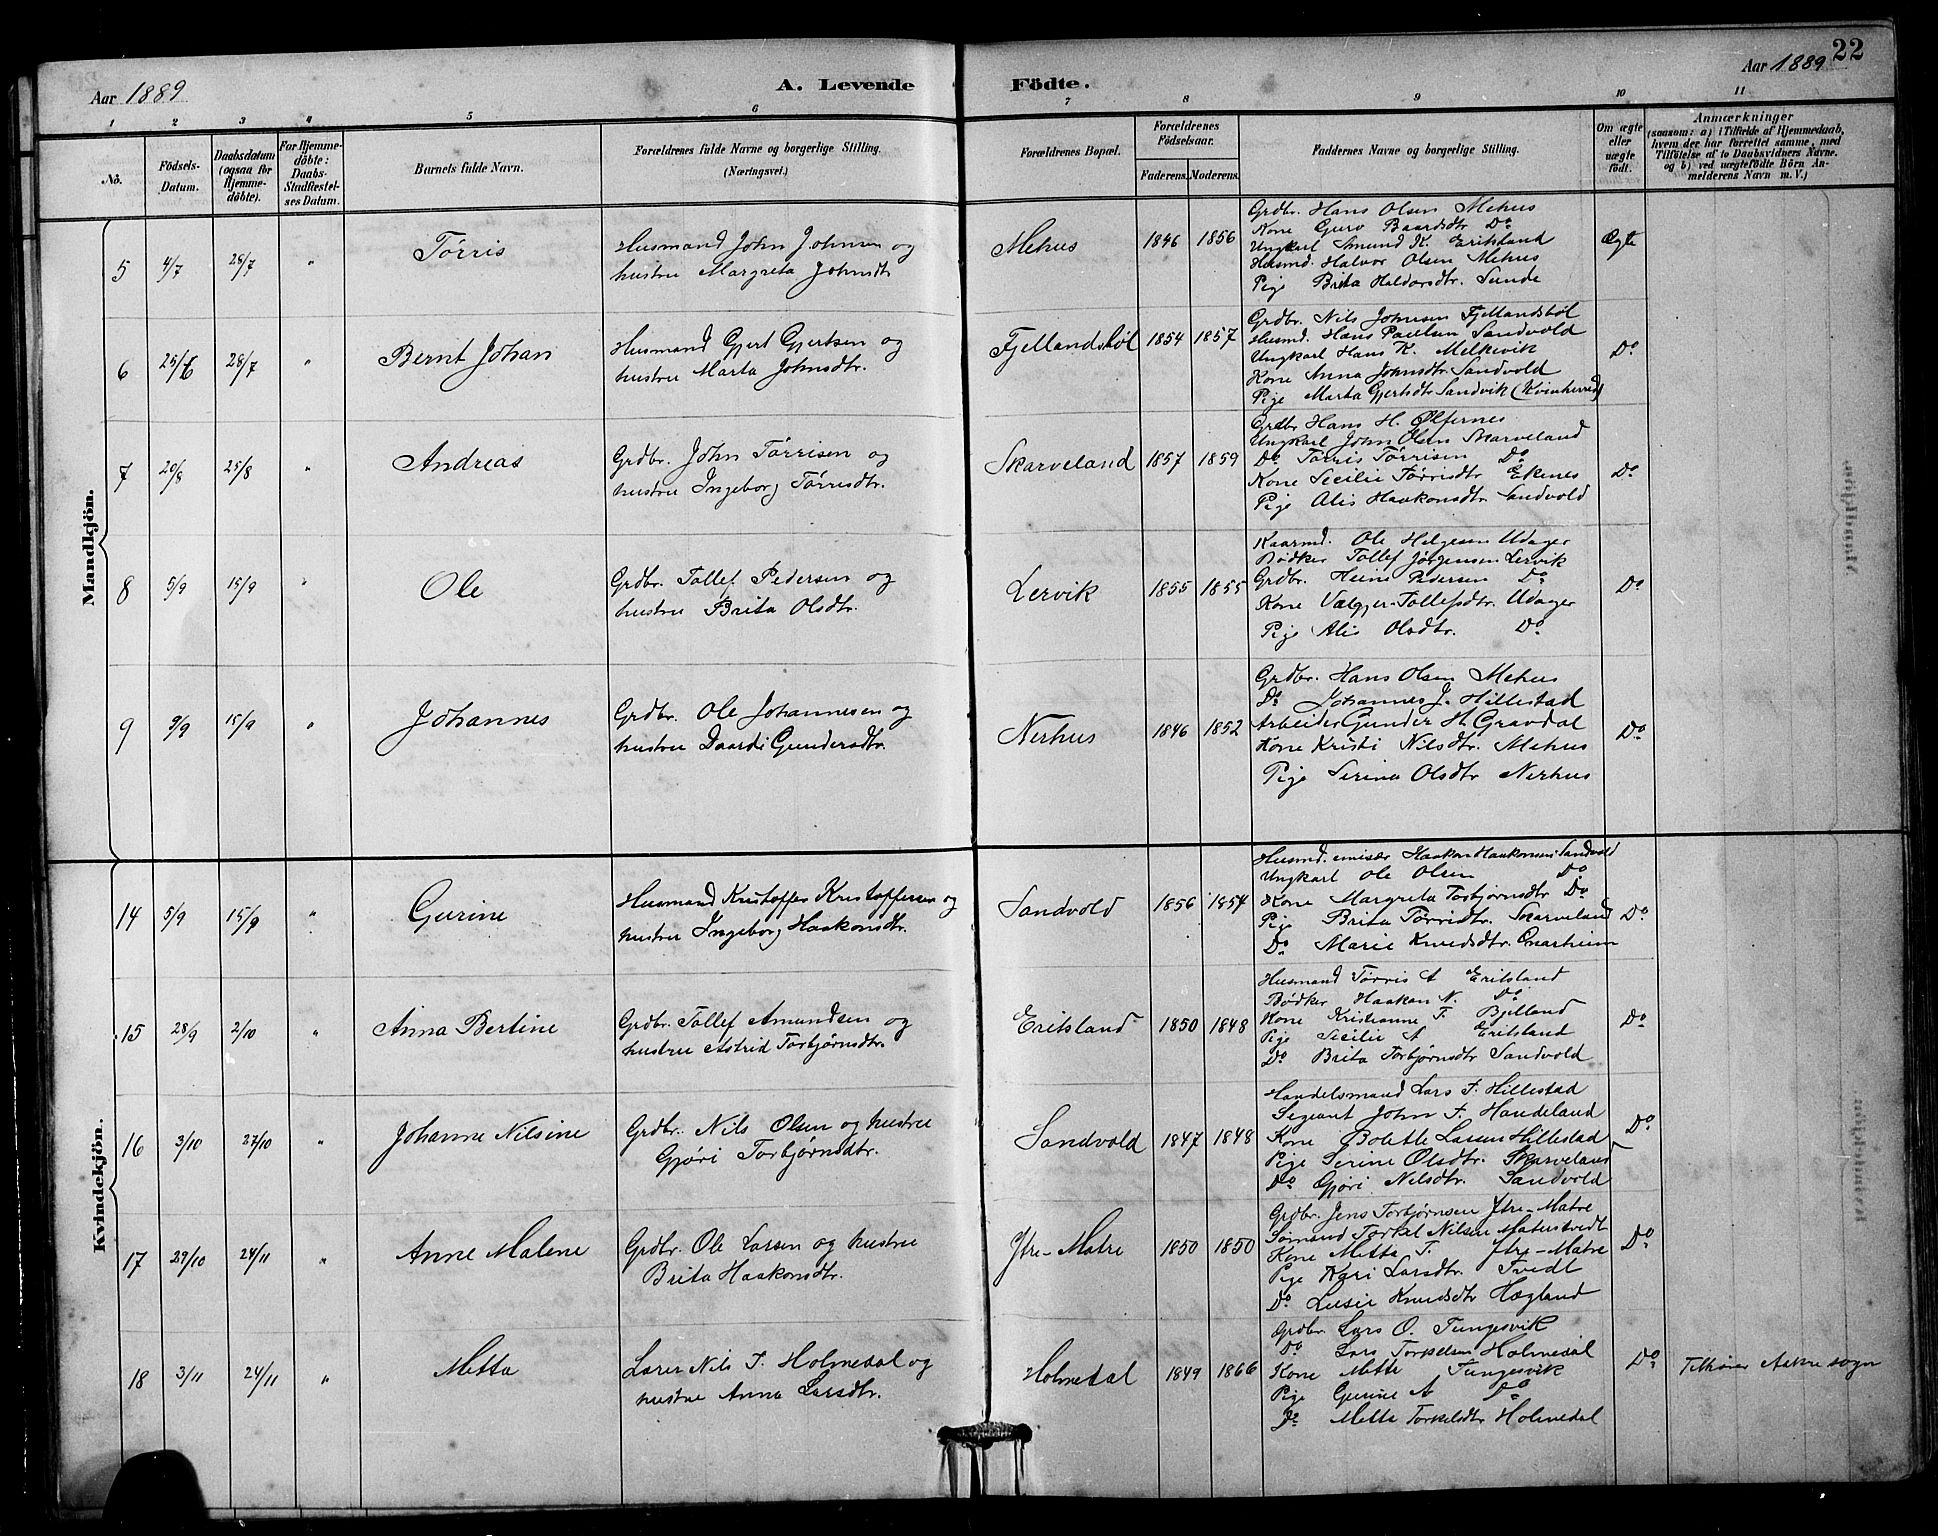 Aar 1889
A. Levende Födte.
Aar 1889
22
1 2 3 4 5 6 7 8 9 10 11
No.
Födsels-Datum.
Daabsdatum (ogsaa for Hjemmedöbte).
For Hjemmedöbte: Daabs-Stadfæstelses Datum.
Barnets fulde Navn.
Forældrenes fulde Navne og borgerlige Stilling. (Næringsvei.)
Forældrenes Bopæl.
Forældrenes Födselsaar.
Faderens. Moderens.
Faddernes Navne og borgerlige Stilling.
Om ægte eller uægte födt.
Anmærkninger
(saasom: a) i Tilfælde af Hjemmedaab, hvem der har forrettet samme, med Tilföielse af to Daabsvidners Navne, og b) ved uægtefödte Börn Anmelderens Navn m. V.)
Mandkjön.
5 4/7 28/7 " Tørris
Husmand John Johnsen og
hustru Margreta Johnsdtr.
Mehus 1846 1856
Grdbr. Hans Olsen Mehus
Kone Guro Baardsdtr Do
Ungkarl Amund K. Eriksland
Husmd. Halvor Olsen Mehus
Pige Brita Haldorsdtr. Sunde
Ægte
6 25/6 28/7 " Bernt Johan
Husmand Gjert Gjertsen og
hustru Marta Johnsdtr.
Fjellandsbøl 1854 1857
Grdbr. Nils Johnsen Fjellandsbøl
Husmd. Hans Paulsen Sandvold
Ungkarl Hans K. Melkevik
Kone Anna Johnsdtr Sandvold
Pige Marta Gjertsdtr Sandvik (Kvinherred)
Do
7 20/8 25/8 " Andreas
Grdbr. John Tørrisen og
hustru Ingeborg Tørrisdtr.
Skarveland 1857 1859
Grdbr Hans H. Ølfernes
Ungkarl John Olsen Skarveland
Do Tørris Tørrisen Do
Kone Secilie Tørrisdtr Ekenes
Pige Alis Haakonsdtr Sandvold
Do
8 5/9 15/9 " Ole
Grdbr. Tollef Pedersen og
hustru Brita Olsdtr.
Lervik 1855 1855
Kaarmd. Ole Helgesen Udager
Bødker Tollef Jørgensen Lervik
Grdbr. Heine Pedersen Do
Kone Vælgjer Tollefsdtr. Udager
Pige Alis Olsdtr. Do
Do
9 9/9 15/9 " Johannes
Grdbr. Ole Johannesen og
hustru Daardi Gundersdtr.
Nerhus 1846 1852
Grdbr. Hans Olsen Mehus
Do Johannes J. Hillestad
Arbeider Gunder H. Gravdal
Kone Kristi Nilsdtr. Mehus
Pige Serina Olsdtr Nerhus
Do
Kvindekjön.
14 5/9 15/9 " Gurine
Husmand Kristoffer Kristoffersen og
hustru Ingeborg Haakonsdtr.
Sandvold 1856 1854
Husmd. emisær Haakon Haakonsen Sandvold
Ungkarl Ole Olsen Do
Kone Margreta Torbjørnsdtr Do
Pige Brita Tørrisdtr. Skarveland
Do Marie Knudsdtr. Onarheim
Do
15 28/9 2/10 " Anna Bertine
Grdbr. Tollef Amundsen og
hustru Astrid Torbjørnsdtr.
Eriksland 1850 1848
Husmand Tørris A Eriksland
Bødker Haakon N. Do
Kone Kristianne T. Bjelland
Pige Secilie A Eriksland
Do Brita Torbjørnsdtr Sandvold
Do
16 3/10 27/10 " Johanne Nilsine
Grdbr. Nils Olsen og hustru
Gjøri Torbjørnsdtr.
Sandvold 1847 1848
Handelsmand Lars T. Hillestad
Sergeant John T. Handeland
Kone Bolette Larsen Hillestad
Pige Serine Olsdtr. Skarveland
Do Gjøri Nilsdtr. Sandvold
Do
17 29/10 24/11 " Anne Malene
Grdbr. Ole Larsen og hustru
Brita Haakonsdtr.
Ytre-Matre 1850 1850
Grdbr. Jens Torbjørnsen Ytre-Matre
Sømand Torkel Nilsen Matretvedt
Kone Metta T. Ytre-Matre
Pige Kari Larsdtr. Tvedt
Do Lusie Knudsdtr Hægland
Do
18 3/11 24/11 " Metta
Lærer Nils T. Holmedal og
hustru Anna Larsdtr.
Holmedal 1849 1866
Grdbr. Lars O. Tungesvik
Do Lars Torkelsen Holmedal
Kone Mette Tungesvik
Pige Gurine A Do
Do Metta Torkelsdtr Holmedal
Do
Tilhører Aakre sogn